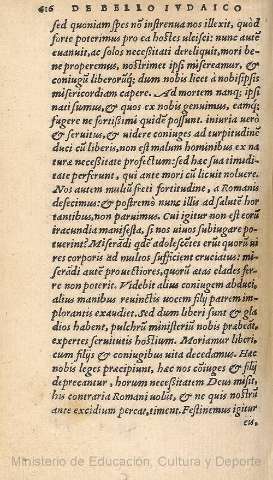 616 DE BELLO IVDAICO
sed quoniam spes nō instrenua nos illexit, quòd
forte poterimus pro ea hostes ulcisci: nunc autē
euanuit, ac solos necessitati dereliquit, mori be-
ne properemus, nostrimet ipsi misereamur, &
coniugū liberorúq; dum nobis licet à nobisipsis
misericordiam capere. Ad mortem nanq; ipsi
nati sumus, & quos ex nobis genuimus, eamq;
fugere ne fortissimi quidē possunt. iniuria uerò
& seruitus, & uidere coniuges ad turpitudinē
duci cū liberis, non est malum hominibus ex na
turæ necessitate profectum: sed hæc sua timudi-
tate perferunt, qui ante mori cū licuit noluere.
Nos autem multū freti fortitudine, à Romanis
defecimus: & postremò nunc illis ad salutē hor
tantibus, non paruimus. Cui igitur non est eorū
iracundia manifesta, si nos uiuos subiugare po-
tuerint? Miserādi qdē adolescētes erūt quorū ui
res corporis ad multos sufficient cruciatus: mi-
serādi autē prouectiores, quorū ætas clades fer-
re non poterit. Videbit alius coniugem abduci,
alius manibus reuinctis uocem filij patrem im-
plorantis exaudiet. Sed dum liberi sunt & gla
dios habent, pulchrū ministeriū nobis præbeāt,
expertes seruitutis hostium. Moriamur liberi,
cum filijs & coniugibus uita decedamus. Hæc
nobis leges præcipiunt, hæc nos cōiuges & filij
deprecantur, horum necessitatem Deus misit,
his contraria Romani uolūt, & ne quis nostrū
ante excidium pereat, timent. Festinemus igitur
Ministerio de Educación, Cultura y Deporte